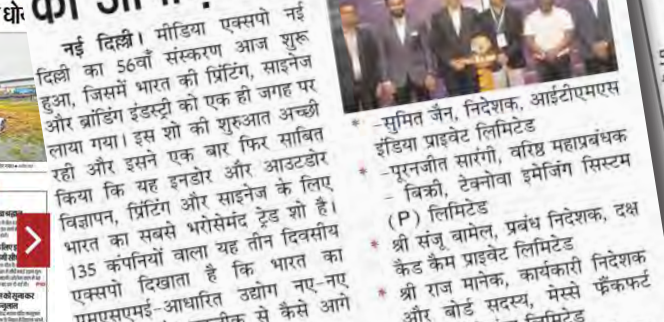 नई दिल्ली। मीडिया एक्सपो नई
दिल्ली का 56वाँ संस्करण आज शुरू
हुआ, जिसमें भारत की प्रिंटिंग, साइनेज
और ब्रांडिंग इंडस्ट्री को एक ही जगह पर
लाया गया। इस शो की शुरुआत अच्छी
रही और इसने एक बार फिर साबित
किया कि यह इनडोर और आउटडोर
विज्ञापन, प्रिंटिंग और साइनेज के लिए
भारत का सबसे भरोसेमंद ट्रेड शो है।
135 कंपनियों वाला यह तीन दिवसीय
एक्सपो दिखाता है कि भारत का
एमएसएमई-आधारित उद्योग नए-नए
से कैसे आगे
* -सुमित जैन, निदेशक, आईटीएमएस
इंडिया प्राइवेट लिमिटेड
* -पूरनजीत सारंगी, वरिष्ठ महाप्रबंधक
- बिक्री, टेक्नोवा इमेजिंग सिस्टम
(P) लिमिटेड
* श्री संजू बामेल, प्रबंध निदेशक, दक्ष
कैड कैम प्राइवेट लिमिटेड
* श्री राज मानेक, कार्यकारी निदेशक
और बोर्ड सदस्य, मेस्से फ्रैंकफर्ट
लिमिटेड